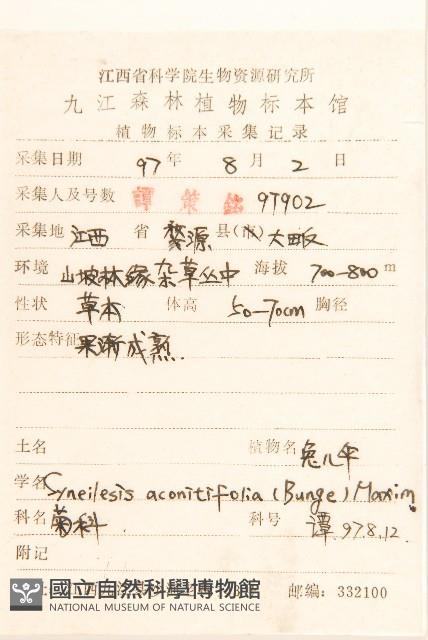 江西省科学院生物资源研究所
九江森林植物标本馆
植物标本采集记录
采集日期 97年 8月 2日
采集人及号数 譚策銘 97902
采集地 江西 省 婺源 县(市) 大畈
环境 山坡林缘杂草丛中 海拔 700-800m
性状 草本 体高 50-70cm 胸径
形态特征 果渐成熟.
土名 植物名 兔儿伞
学名 Syneilesis aconitifolia (Bunge) Maxim.
科名 菊科 科号 谭 97.8.12.
附记
國立自然科學博物館 邮编: 332100
NATIONAL MUSEUM OF NATURAL SCIENCE